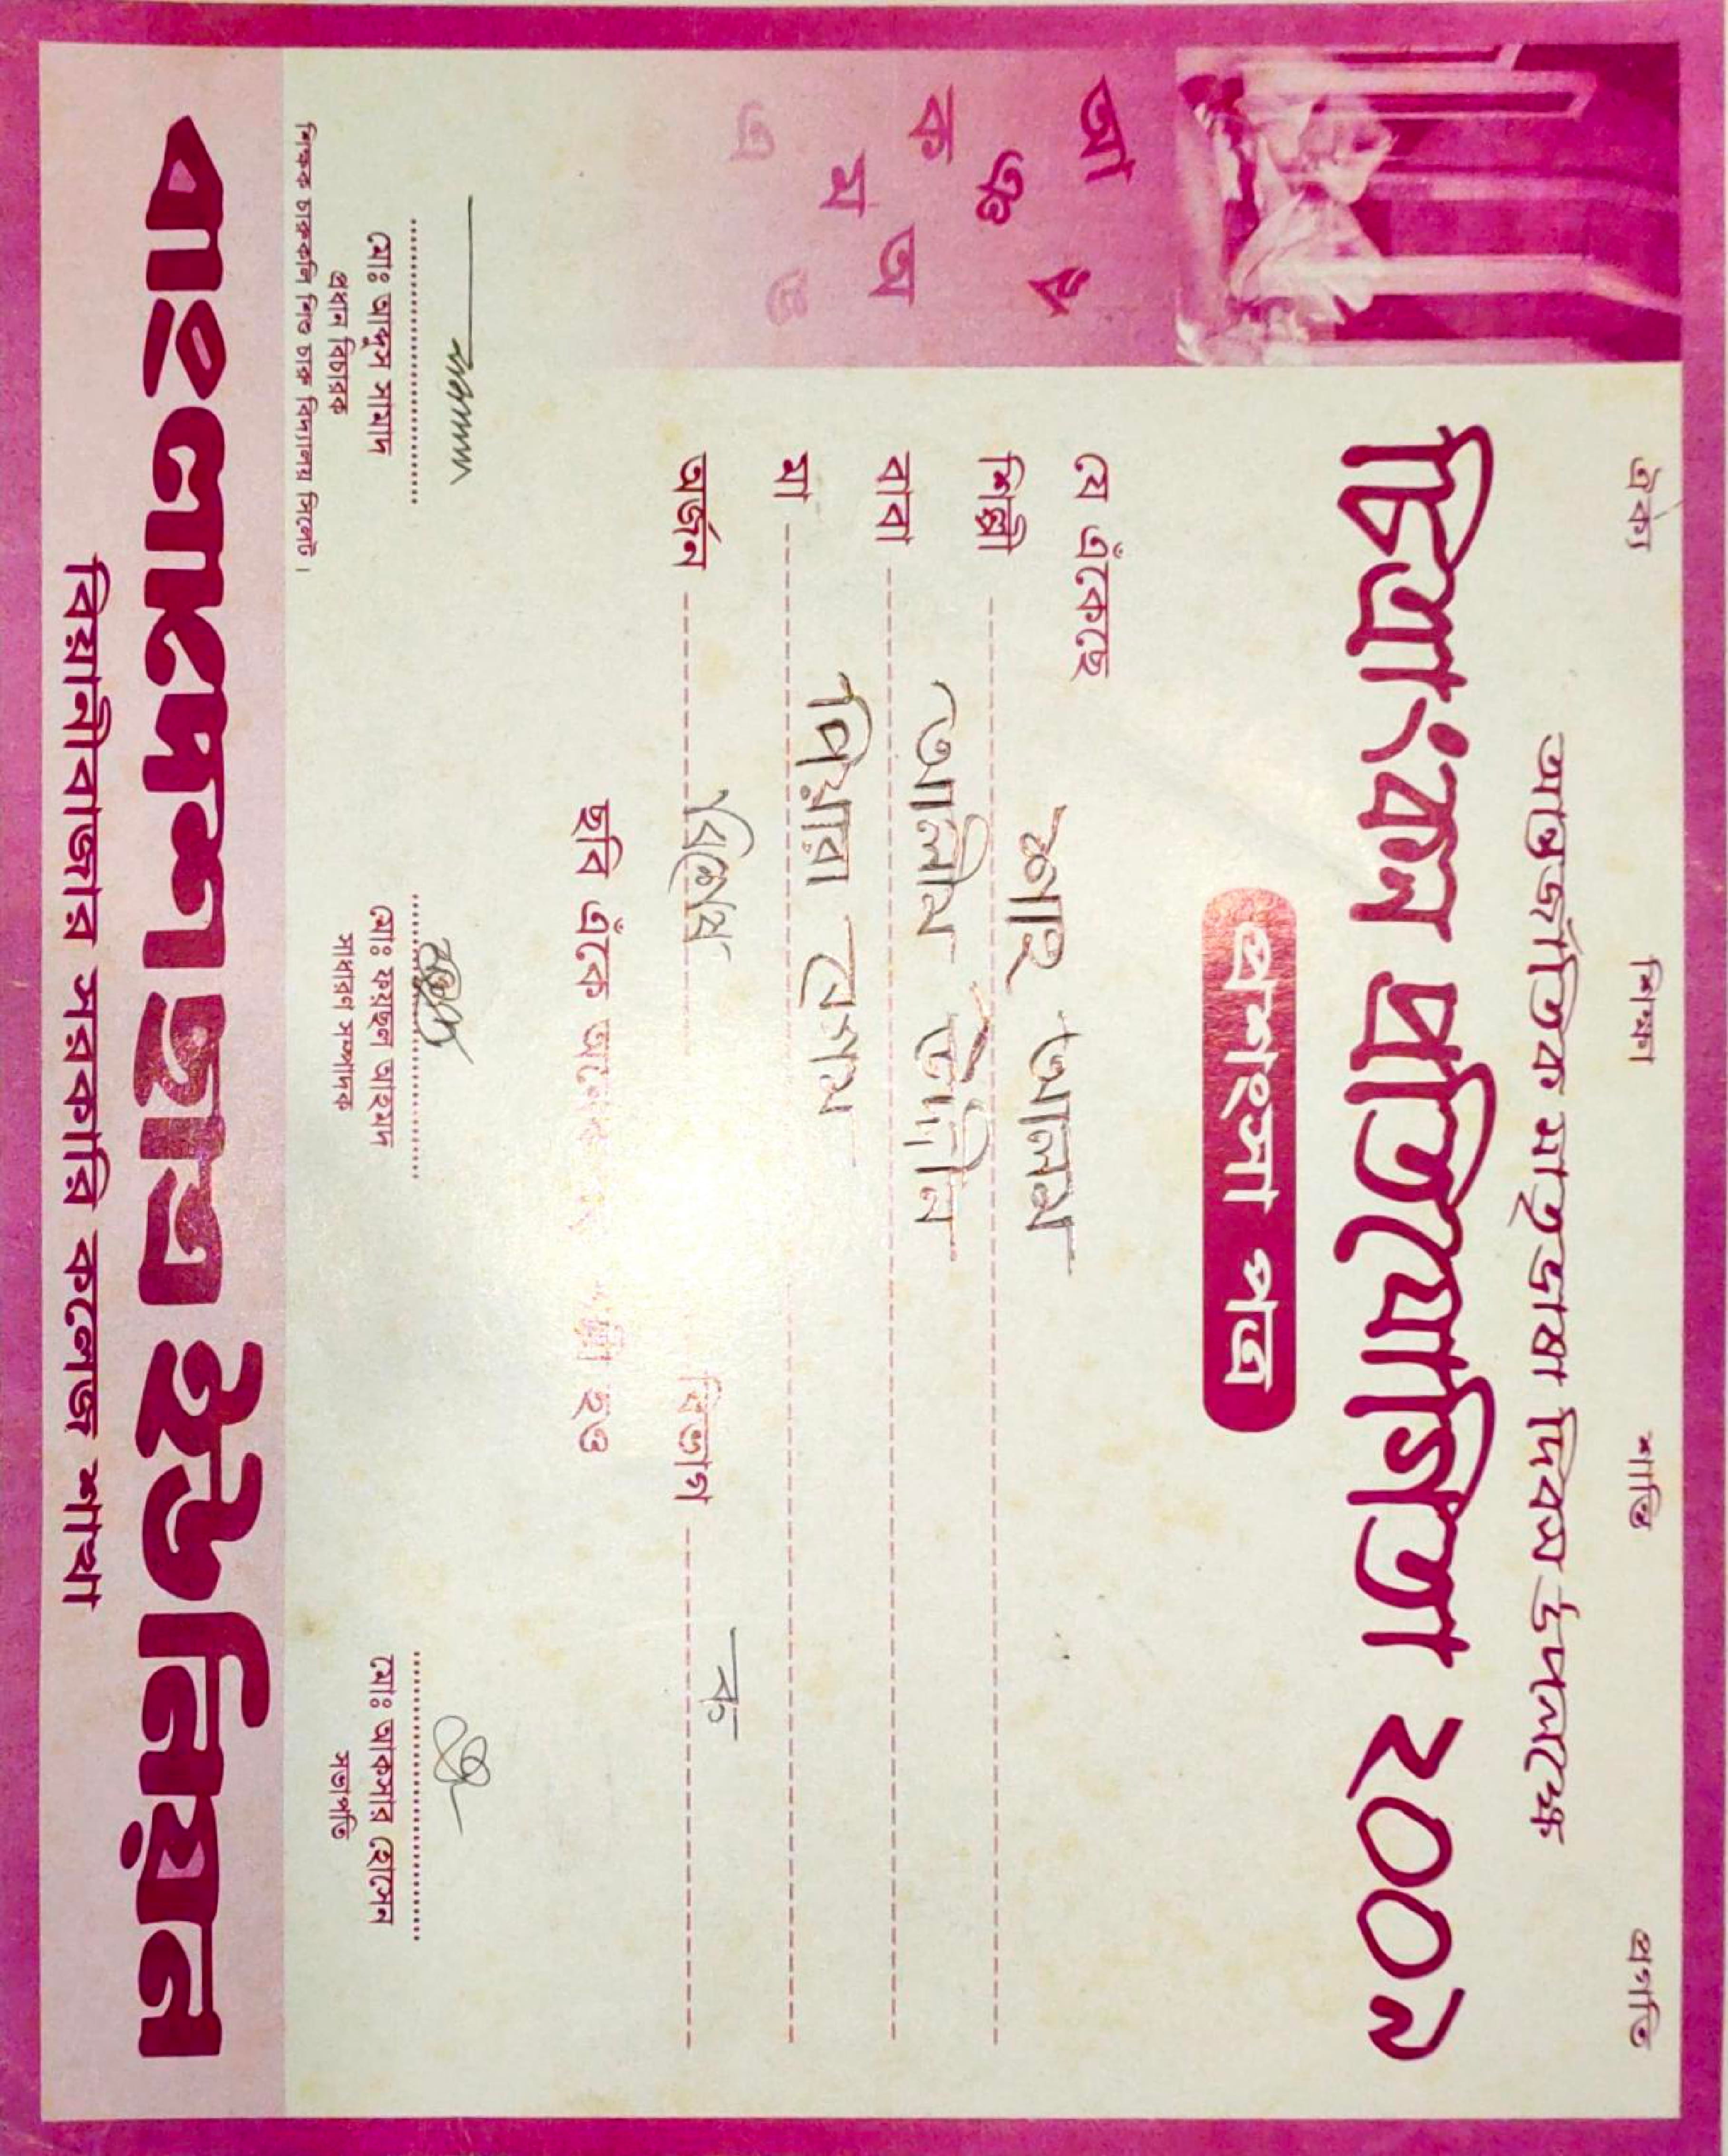 ঐক্য শিক্ষা শান্তি প্রগতি
আন্তর্জাতিক মাতৃভাষা দিবস উপলক্ষে
চিত্রাংকন প্রতিযোগিতা ২০০৯
প্রশংসা পত্র
আ
ৎ
ঞ
ক
অ
ম
ঙ
এ
যে এঁকেছে
শিল্পী শাহ আলম
বাবা আলীম উদ্দীন
মা পিয়ারা বেগম
অর্জন বিশেষ বিভাগ ক
ছবি এঁকে অনেক হও
মোঃ আব্দুস সামাদ
প্রধান বিচারক
শিক্ষক চারুকলি শিশু চারু বিদ্যালয় সিলেট।
মোঃ ফয়ছল আহমদ
সাধারণ সম্পাদক
মোঃ আকসার হোসেন
সভাপতি
বাংলাদেশ ছাত্র ইউনিয়ন
বিয়ানীবাজার সরকারি কলেজ শাখা